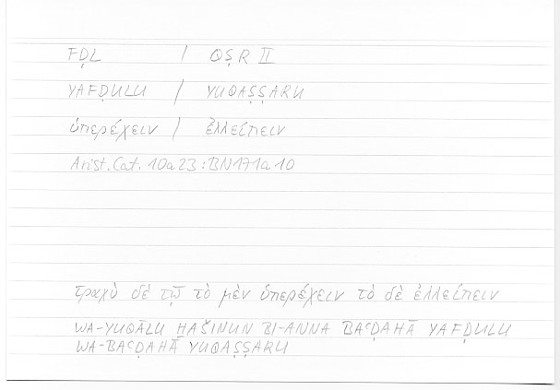 FḌL / QṢR II
YAFḌULU / YUQAṢṢARU
ὑπερέχειν / ἐλλείπειν
Arist. Cat. 10a23 : BN171a10
τραχὺ δὲ τῷ τὸ μὲν ὑπερέχειν τὸ δὲ ἐλλείπειν
WA-YUQĀLU ḪAŠINUN BI-ANNA BAʿḌAHĀ YAFḌULU
WA-BAʿḌAHĀ YUQAṢṢARU